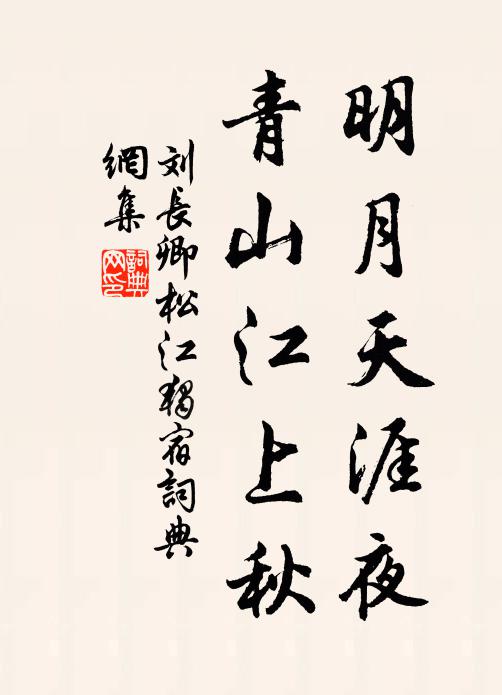 明月天涯夜
青山江上秋
刘長卿松江獨宿詞典
網集
詞典
网印